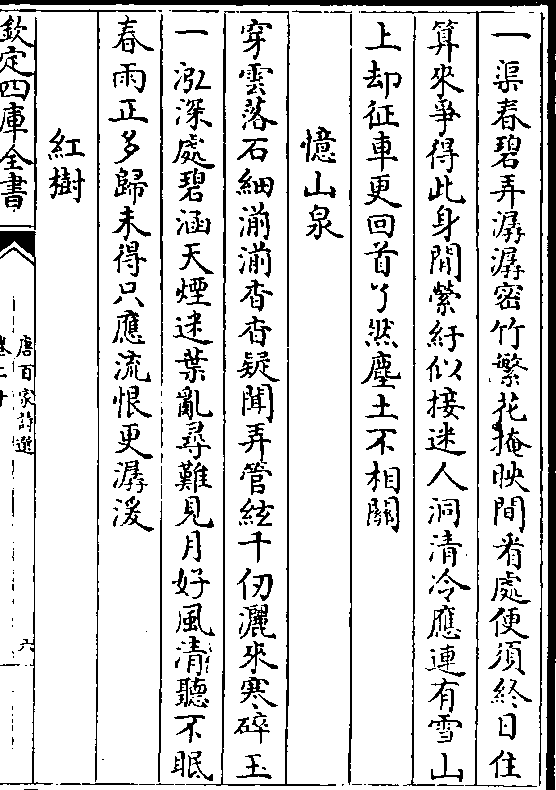 一渠春碧弄潺潺密竹繁花掩映間看處便須終日住
算來爭得此身閒縈紆似接迷人洞清冷應連有雪山
上却征車更回首了然塵土不相關
憶山泉
穿雲落石細湔湔杳杳疑聞弄管絃千仞灑來寒碎玉
一泓深處碧涵天煙迷葉亂尋難見月好風清聽不眠
春雨正多歸未得只應流恨更潺湲
紅樹
欽定四庫全書
唐百家詩選
卷二十
六